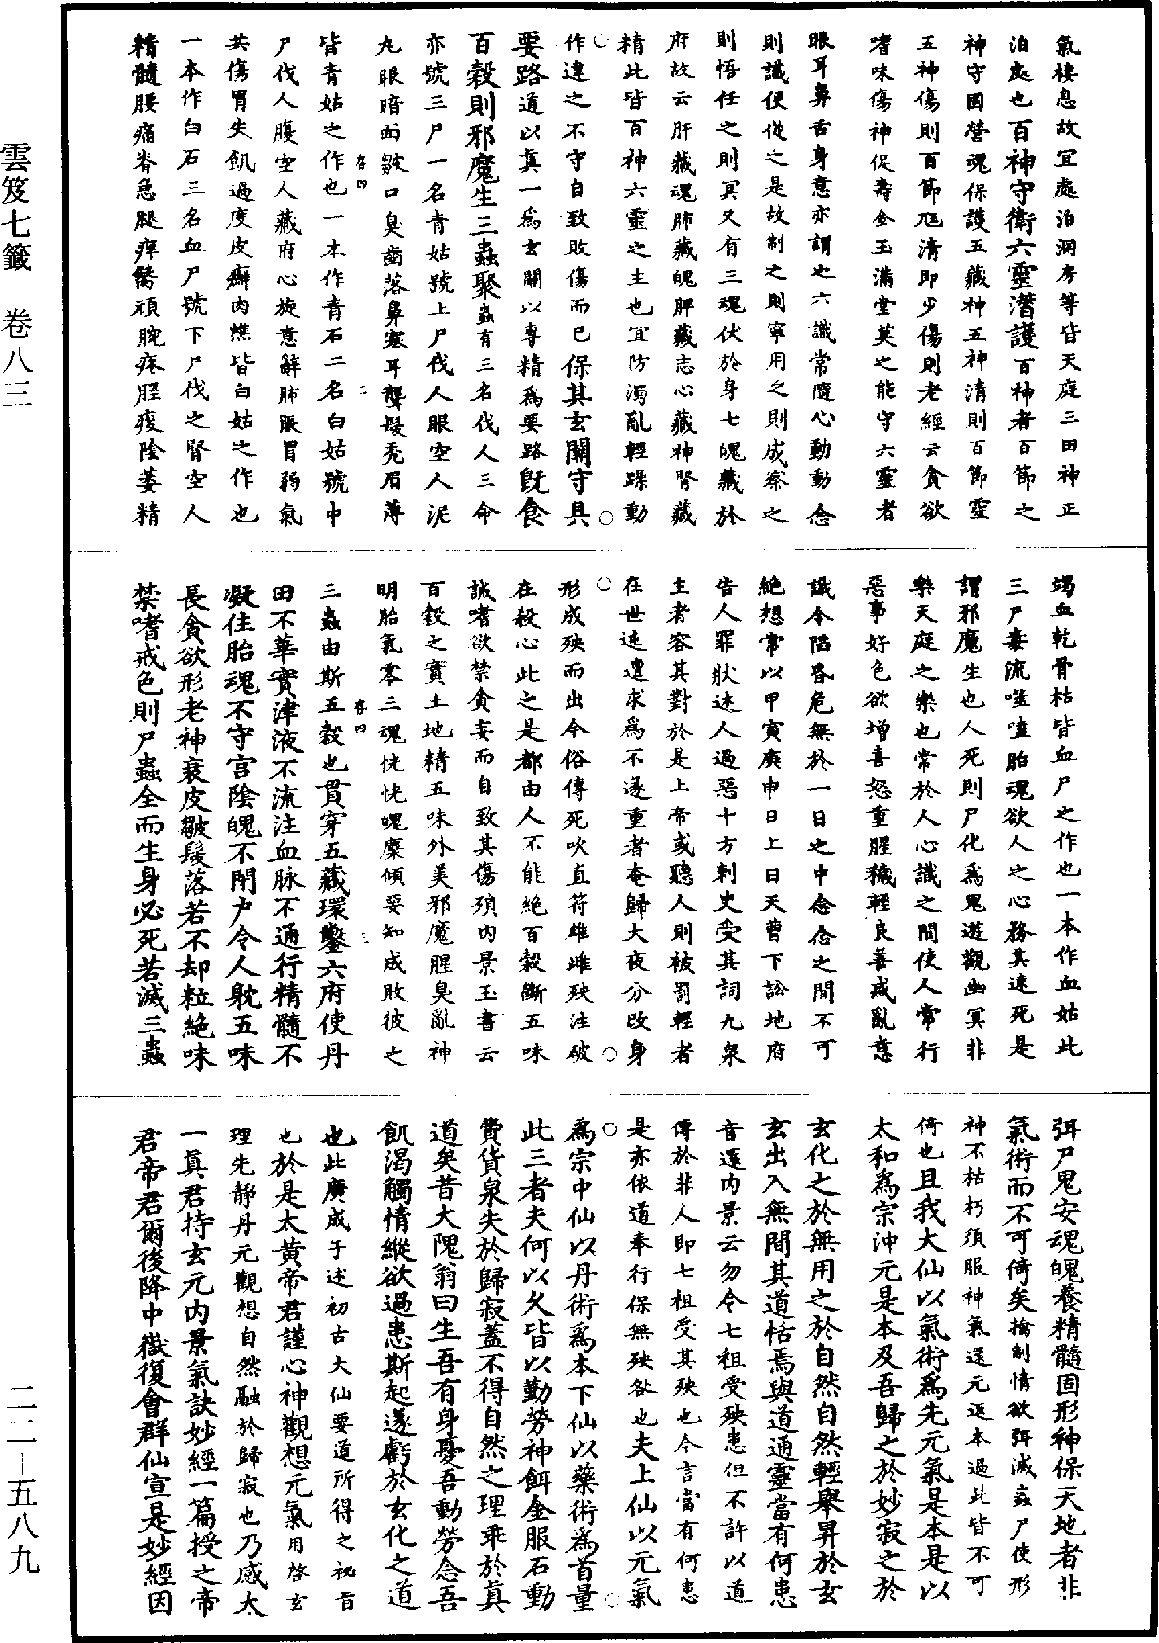 氣棲息故宜處泊洞房等皆天庭三田神正
泊處也百神守衛六靈潛護百神者百節之
神守國營魂保護五藏神五神清則百節靈
五神傷則百節尪清即少傷則老經云貪欲
嗜味傷神促壽金玉滿堂莫之能守六靈者
眼耳鼻舌身意亦謂之六識常隨心動動念
則識便從之是故制之則寧用之則成察之
則悟任之則冥又有三魂伏於身七魄藏於
府故云肝藏魂肺藏魄脾藏志心藏神腎藏
精此皆百神六靈之主也宜防濁亂輕躁動
作違之不守自致敗傷而已保其玄關守具
要路道以真一為玄關以專精為要路既食
百穀則邪魔生三蟲聚蟲有三名伐人三命
亦號三尸一名青姑號上尸伐人眼空人泥
丸眼暗面皺口臭齒落鼻塞耳聾髮禿眉薄
皆青姑之作也一本作青石二名白姑號中
尸伐人腹空人藏府心旋意解肺脹胃弱氣
共傷胃失飢過度皮癬肉燋皆白姑之作也
一本作白石三名血尸號下尸伐之腎空人
精髓腰痛脊急腿痺𦡀頑腕疼脛痠陰萎精
竭血乾骨枯皆血尸之作也一本作血姑此
三尸毒流噬嗑胎魂欲人之心務其速死是
謂邪魔生也人死則尸化為鬼遊觀幽冥非
樂天庭之樂也常於人心識之間使人常行
惡事好色欲增喜怒重腥穢輕良善惑亂意
識令陷昏危無於一日之中念念之間不可
絕想常以甲寅庚申日上白天曹下訟地府
告人罪狀述人過惡十方刺史受其詞九泉
主者容其對於是上帝或聽人則被罰輕者
在世迍邅求為不遂重者奄歸大夜分改身
形成殃而出今俗傳死次直符雄雌殃注破
在殺心此之是都由人不能絕百穀斷五味
誡嗜欲禁貪妄而自致其傷殞內景玉書云
百穀之實土地精五味外美邪魔腥臭亂神
明胎氣零三魂恍恍魄糜傾要知成敗彼之
三蟲由斯五穀也貫穿五藏環鑿六府使丹
田不華實津液不流注血脉不通行精髓不
凝住胎魂不守宮陰魄不閉戶令人躭五味
長貪欲形老神衰皮皺髮落若不却粒絕味
禁嗜戒色則尸蟲全而生身必死若滅三蟲
弭尸鬼安魂魄養精髓固形神保天地者非
氣術而不可倚矣擒制情欲弭滅蟲尸使形
神不枯朽須服神氣還元返本過此皆不可
倚也且我大仙以氣術為先元氣是本是以
太和為宗沖元是本及吾歸之於妙寂之於
玄化之於無用之於自然自然輕舉昇於玄
玄出入無間其道恬焉與道通靈當有何患
音還內景云勿令七祖受殃患但不許以道
傳於非人即七祖受其殃也今言當有何患
是亦依道奉行保無殃咎也夫上仙以元氣
為宗中仙以丹術為本下仙以藥術為首量
此三者夫何以久皆以勤勞神餌金服石動
費貨泉失於歸寂蓋不得自然之理乖於真
道矣昔大隗翁曰生吾有身憂吾動勞念吾
飢渴觸情縱欲過患斯起遂虧於玄化之道
也此廣成子述初古大仙要道所得之祕旨
也於是太黃帝君謹心神觀想元氣用啓玄
理先靜丹元觀想自然融於歸寂也乃感太
一真君持玄元內景氣訣妙經一篇授之帝
君帝君爾後降中嶽復會群仙宣是妙經因
存四
二
存四
三
雲笈七籤 卷八三
二二—五八九